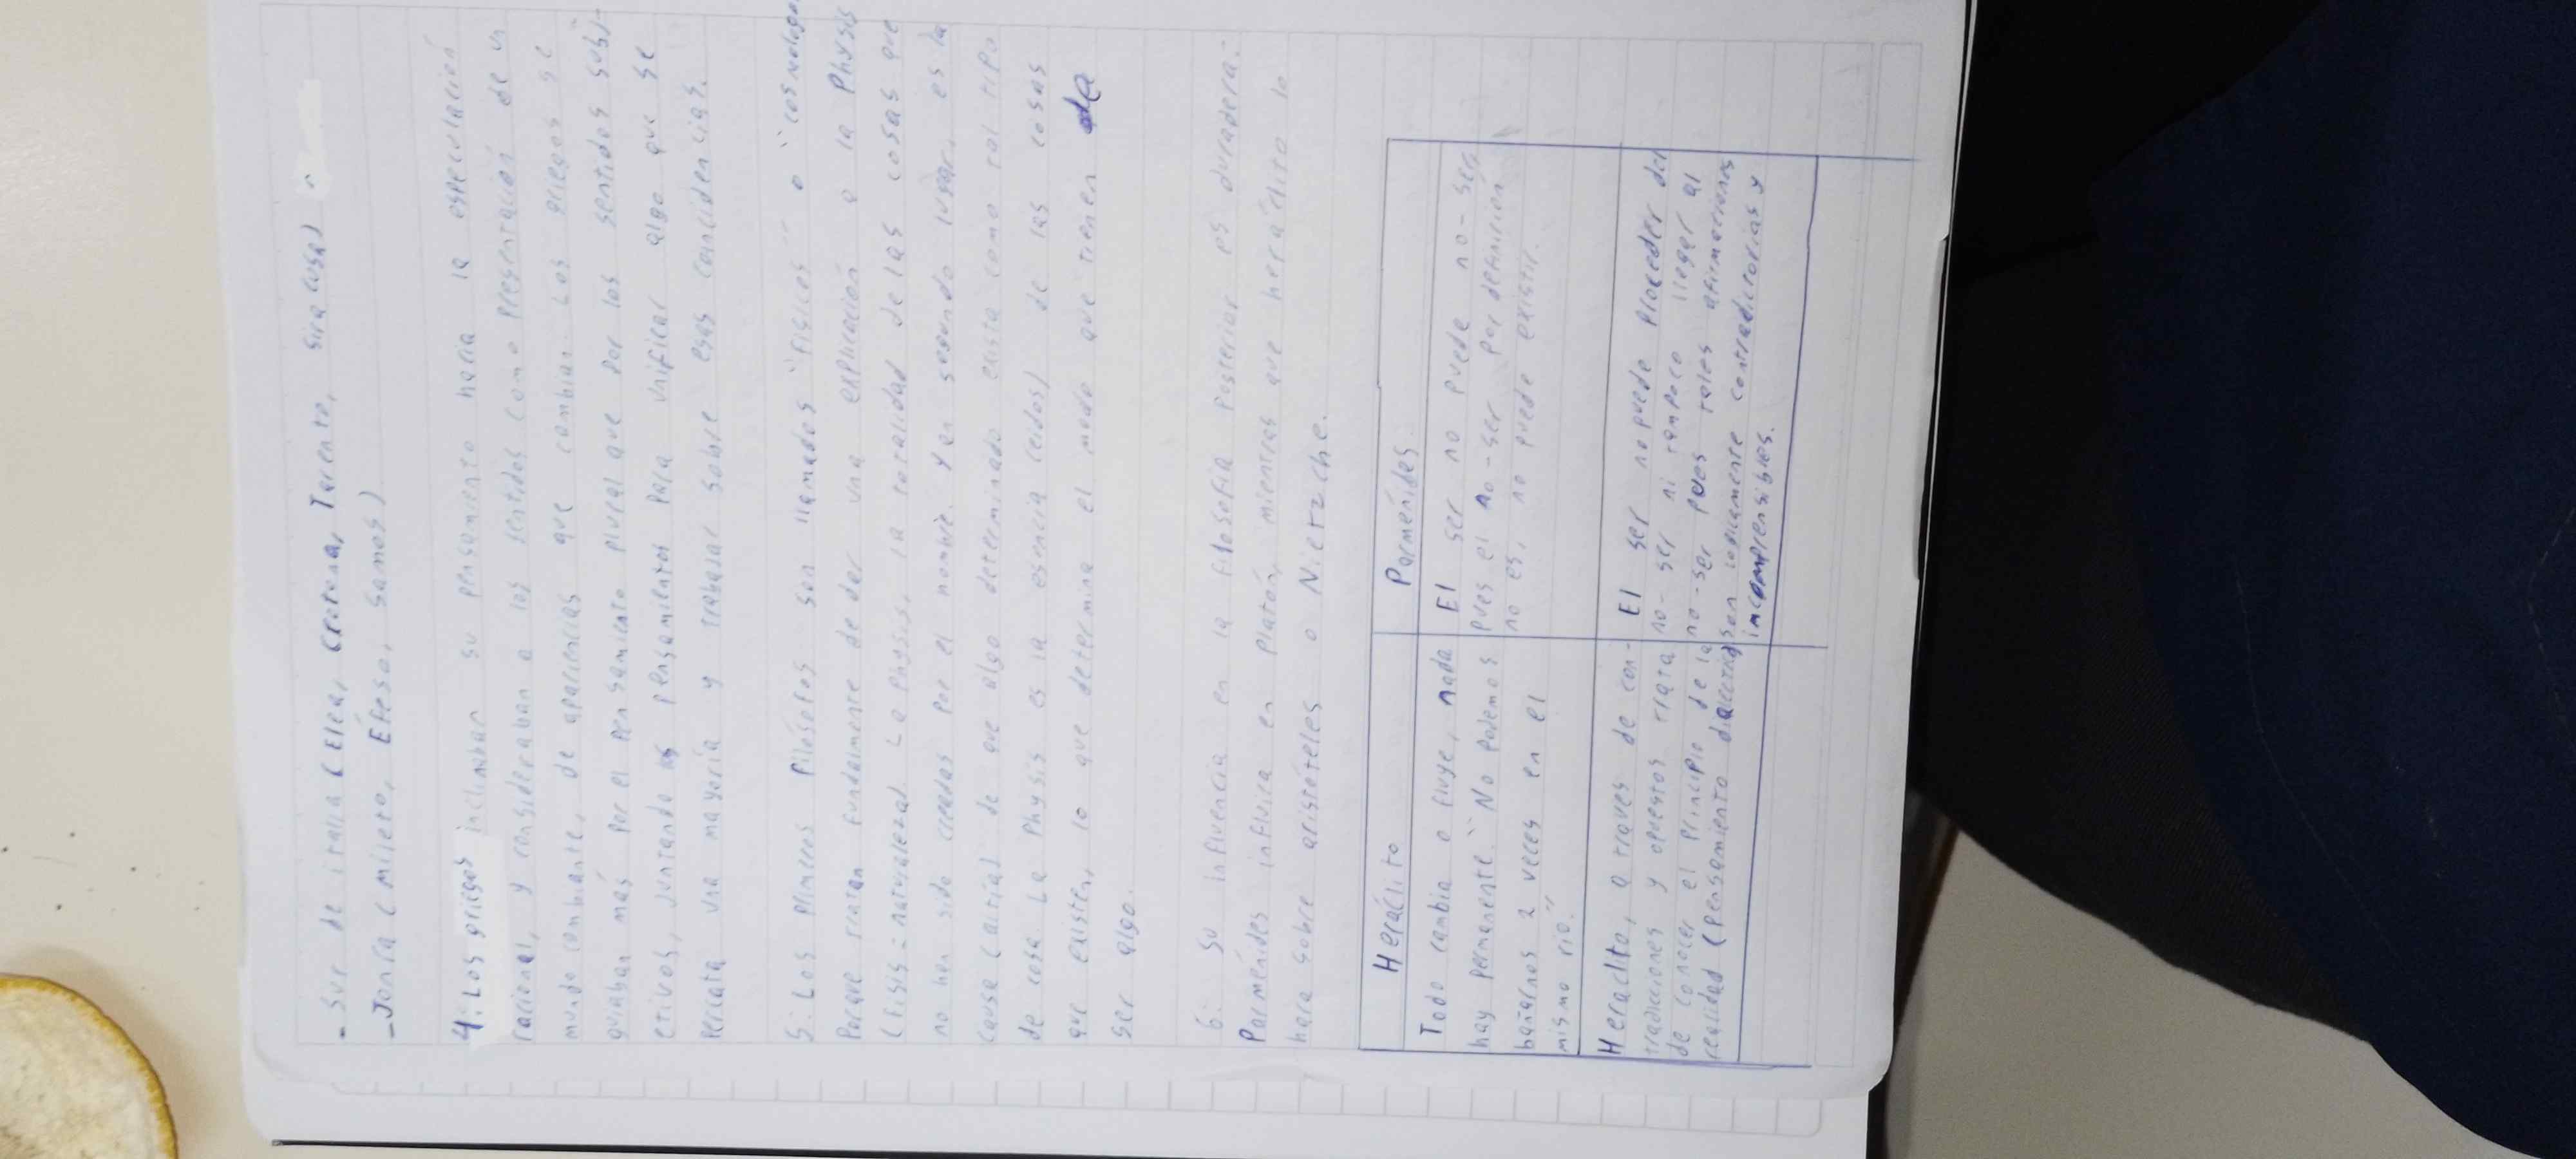 - Sur de italia (Elea, Crotona, Tarento, Siracusa)
- Jonia (mileto, Éfeso, Samos)
4: Los griegos inclinaban su pensamiento hacia la especulación
racional, y consideraban a los sentidos como presentación de un
mundo cambiante, de apariencias que cambian. Los griegos se
guiaban más por el pensamiento plural que por los sentidos subj-
etivos, juntando pensamientos para unificar algo que se
percata una mayoría y trabajar sobre esas coincidencias.
5: Los primeros filósofos son llamados "físicos" o "cosmólogos
Porque tratan fundamente de dar una explicación a la Physis
(Fisis = naturaleza). La Physis, la totalidad de las cosas que
no han sido creadas por el hombre. Y en segundo lugar, es la
causa (aitía) de que algo determinado exista como tal tipo
de cosa. La Physis es la esencia (eidos) de las cosas
que existen, lo que determina el modo que tienen de
ser algo.
6: Su influencia en la filosofía posterior es duradera:
Parménides influira en platón, mientras que heráclito lo
hara sobre aristóteles o Nietzche.
Heráclito Parménides
Todo cambia o fluye, nada
hay permanente. "No podemos
bañarnos 2 veces en el
mismo río."
El ser no puede no-ser
pues el no-ser por definición
no es, no puede existir.
Heraclito, a traves de con-
tradicciones y opuestos trata
de conocer el principio de la
realidad (pensamiento dialectico)
El ser no puede proceder del
no-ser ni tampoco llegar al
no-ser pues tales afirmaciones
son logicamente contradictorias y
incomprensibles.